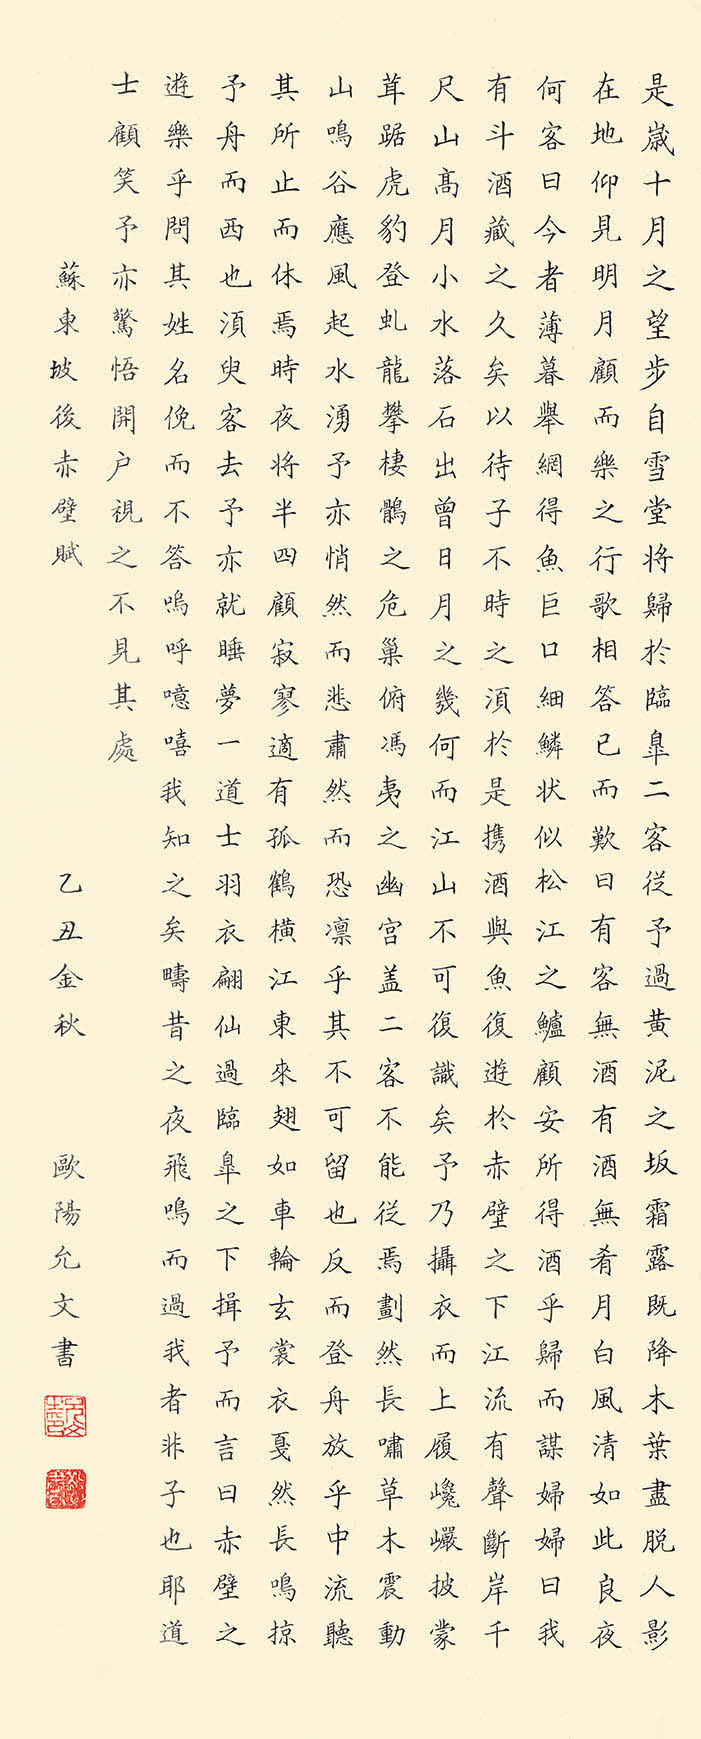 是歲十月之望步自雪堂將歸於臨皐二客從予過黄泥之坂霜露既降木葉盡脱人影
在地仰見明月顧而樂之行歌相答已而歎曰有客無酒有酒無肴月白風清如此良夜
何客曰今者薄暮舉網得魚巨口細鱗状似松江之鱸顧安所得酒乎歸而謀婦婦曰我
有斗酒藏之久矣以待子不時之湏於是携酒與魚復遊於赤壁之下江流有聲斷岸千
尺山髙月小水落石出曾日月之幾何而江山不可復識矣予乃攝衣而上履巉巖披蒙
茸踞虎豹登虬龍攀棲鶻之危巢俯馮夷之幽宫盖二客不能從焉劃然長嘯草木震動
山鳴谷應風起水湧予亦悄然而悲肅然而恐凛乎其不可留也反而登舟放乎中流聽
其所止而休焉時夜將半四顧寂寥適有孤鶴横江東來翅如車輪玄裳衣戛然長鳴掠
予舟而西也湏臾客去予亦就睡夢一道士羽衣翩仙過臨臯之下揖予而言曰赤壁之
遊樂乎問其姓名俛而不答嗚呼噫嘻我知之矣疇昔之夜飛鳴而過我者非子也耶道
士顧笑予亦驚悟開户視之不見其處
蘇東坡後赤壁賦 乙丑金秋 歐陽允文書